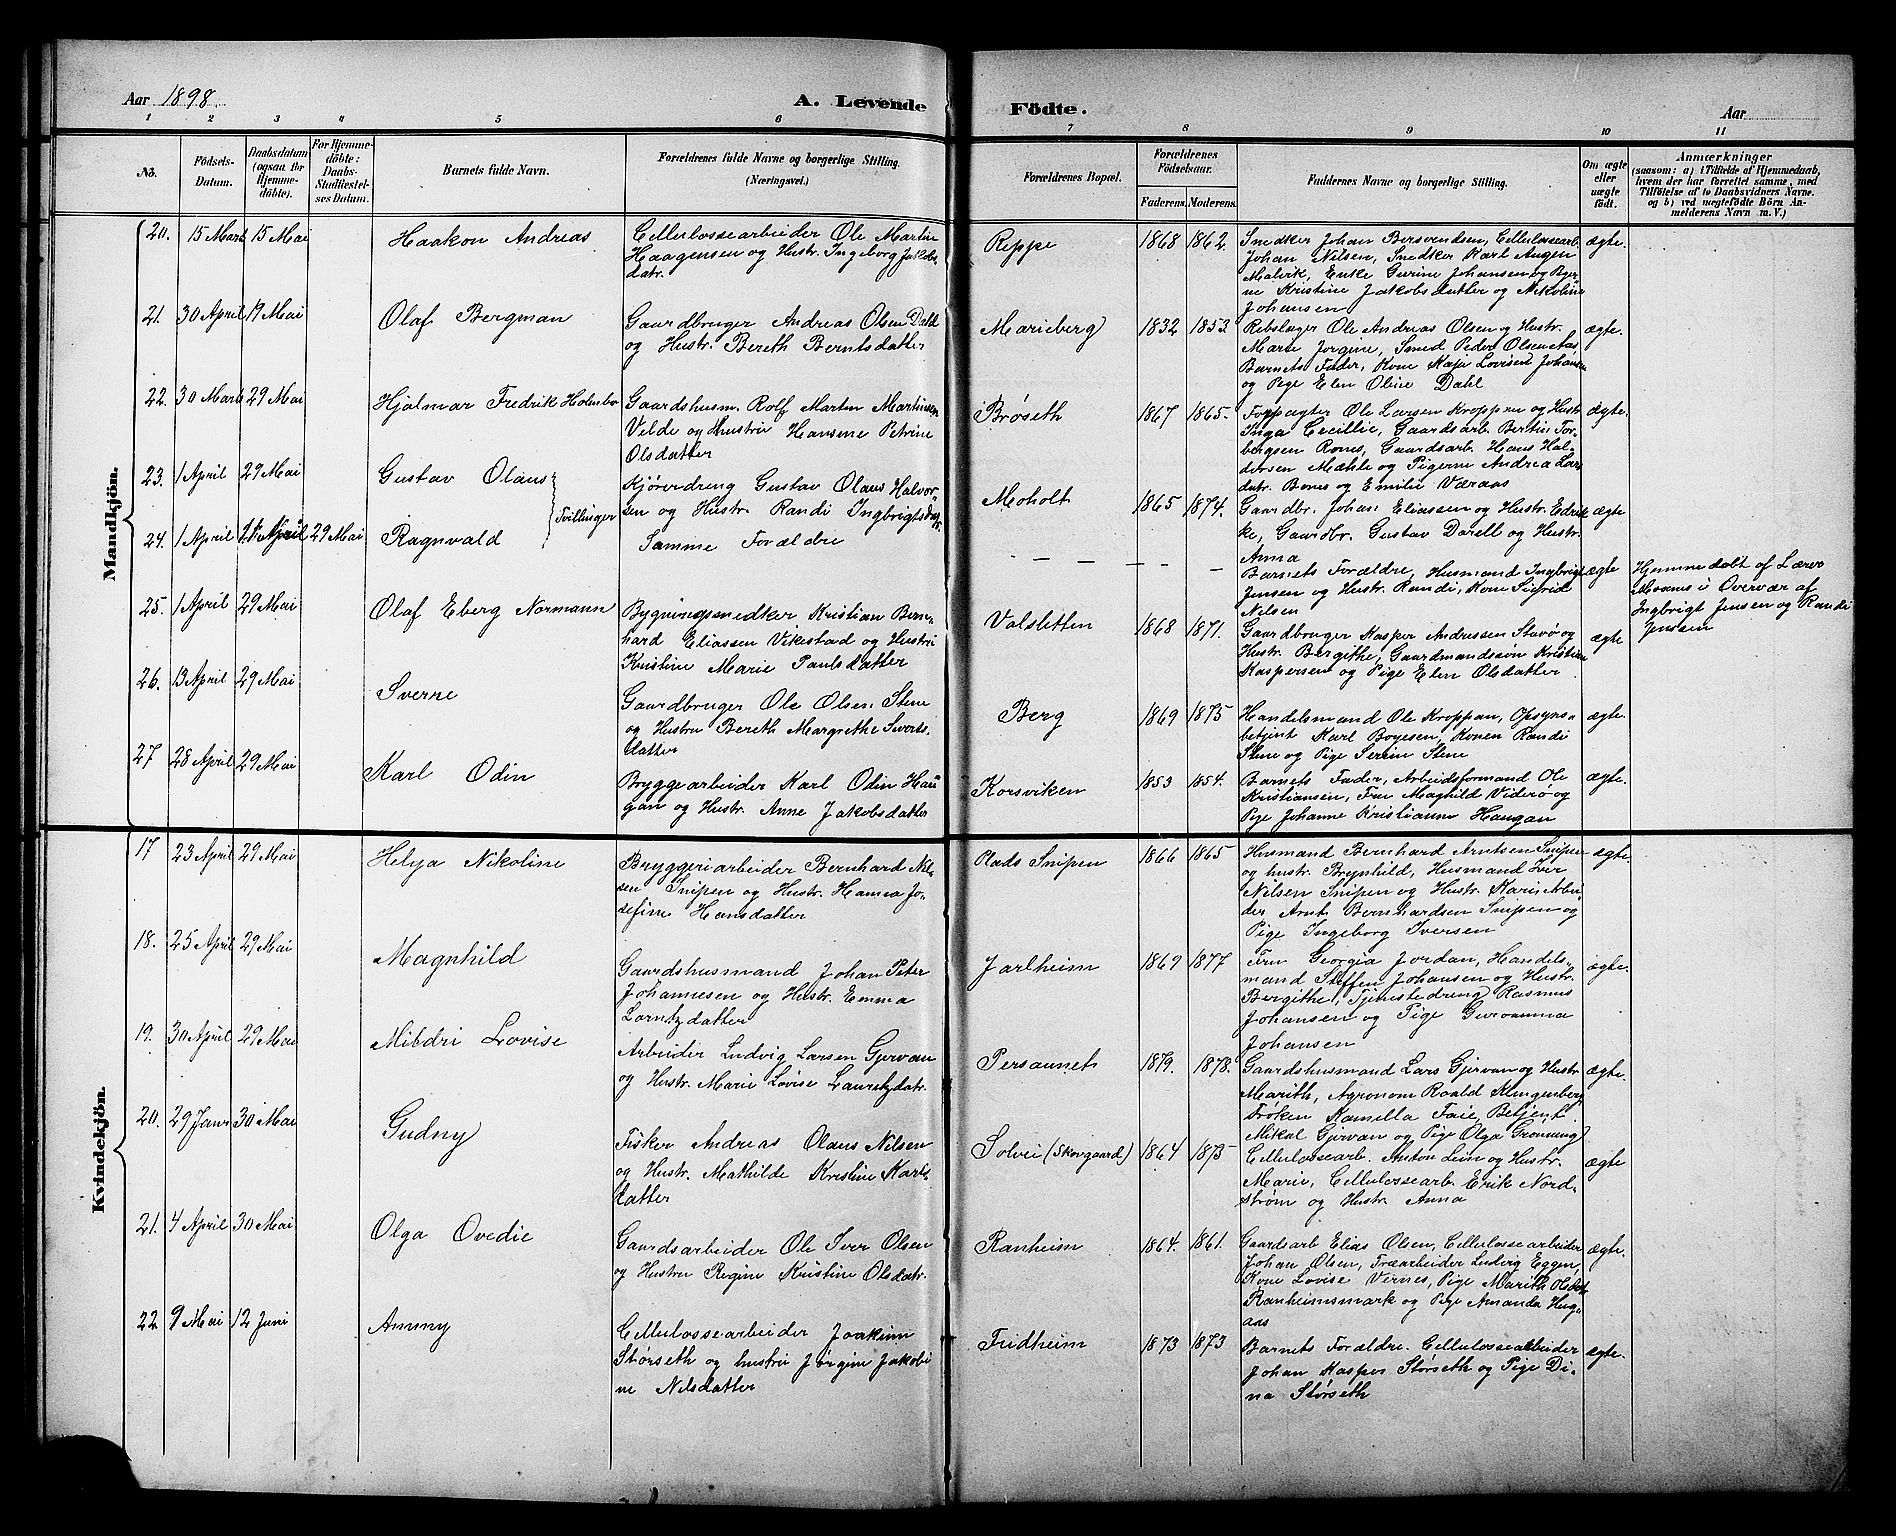 Aar 1898.
A. Levende
1 2 3 4 5 6
No.
Födsels-
Datum.
Daabsdatum
(ogsaa for
Hjemme-
döbte).
For Hjemme-
döbte:
Daabs-
Stadfæstel-
ses Datum.
Barnets fulde Navn.
Forældrenes fulde Navne og borgerlige Stilling.
(Næringsvei.)
Mandkjön.
20. 15 Marts 15 Mai Haakon Andreas
Cellulossearbeider Ole Martin
Haagensen og Hustr. Ingeborg Jakobs-
datr.
21. 30 April 19 Mai Olaf Bergman
Gaardbruger Andreas Olsen Dahl
og Hustr. Bereth Berntsdatter
22. 30 Marts 29 Mai Hjalmar Fredrik Holmbo
Gaardshusm. Rolf Marten Martinsen
Velde og Hustru Hansine Petrine
Olsdatter
23. 1 April 29 Mai Gustav Olaus
Tvillinger
Kjøredreng Gustav Olaus Halvor-
sen og Hustr. Randi Ingbrigtsdatr.
24. 1 April 21 April 29 Mai Ragnvald
Samme Forældre
25. 1 April 29 Mai Olaf Eberg Normann
Bygningssnedker Kristian Bern-
hard Eliassen Vikestad og Hustru
Kristine Marie Paulsdatter
26. 13 April 29 Mai Sverre
Gaardbruger Ole Olsen Stene
og Hustru Bereth Margrethe Sivarts-
datter
27 28 April 29 Mai Karl Odin
Bryggearbeider Karl Odin Hau-
gan og Hustr. Anne Jakobsdatter
Kvindekjön.
17 23 April 29 Mai Helga Nikoline
Bryggeriarbeider Bernhard Nil-
sen Snipen og Hustr. Hanna Jo-
sefine Hansdatter
18. 25 April 29 Mai Magnhild
Gaardshusmand Johan Peter
Johannesen og Hustr. Emma
Lorntzdatter
19. 30 April 29 Mai Mildri Lovise
Arbeider Ludvig Larsen Gjervan
og Hustr. Marie Lovise Lauretzdatr.
20. 29 Janr 30 Mai Gudny
Fisker Andreas Olaus Nilsen
og Hustr. Mathilde Kristine Karls-
datter
21. 4 April 30 Mai Olga Ovedie
Gaardsarbeider Ole Iver Olsen
og Hustru Regine Kristine Olsdatr.
22 9 Mai 12 Juni Ammy
Cellulossearbeider Joakim
Størseth og hustru Jørgine Jakobi-
ne Nilsdatter
Födte.
Aar
7 8 9 10 11
Forældrenes Bopæl.
Forældrenes
Födselsaar.
Faderens. Moderens.
Faddernes Navne og borgerlige Stilling.
Om ægte
eller
uægte
födt.
Anmærkninger
(saasom: a) i Tilfælde af Hjemmedaab,
hvem der har forrettet samme, med
Tilföielse af to Daabsvidners Navne,
og b) ved uægtefödte Börn An-
melderens Navn m. V.)
Reppe 1868 1862.
Snedker Johan Bersvendsen, Cellulossearb. ægte.
Johan Nilsen, Snedker Karl Augen
Malvik, Enke Gurine Johansen og Pger-
ne Kristine Jakobsdatter og Nikoline
Johansen
Marieberg 1832 1853.
Rebslager Ole Andreas Olsen og Hustr. ægte.
Marie Jørgine, Smed Peder Olsen Aas
Barnets Fader, Kone Kaja Lovise Johansen
og Pige Elen Oline Dahl
Brøseth 1867 1865.
Forpagter Ole Larsen Kroppen og Hustr. ægte.
Inga Cecillie, Gaardsarb. Bertin Tor-
bergsen Rones, Gaardsarb. Hans Hal-
dorsen Mæhle og Pigerne Andrea Lars-
datr. Bones og Emilie Væraas
Moholt 1865 1874.
Gaardbr. Johan Eliassen og Hustr. Edrik- ægte
ke, Gaardbr. Gustav Darell og Hustr.
Anna
— — — — —
Barnets Forældre, Husmand Ingbrigt ægte
Jensen og Hustr. Randi, Kone Sigrid
Nilsen
Hjemmedøbt af Lærer
Moxnes i Overvær af
Ingbrigt Jensen og Randi
Jensen
Valsletten 1868 1871.
Gaardbruger Kasper Andressen Stavø og ægte
Hustr. Bergithe, Gaardmandssøn Kristian
Kaspersen og Pige Elen Olsdatter
Berg 1869 1875
Handelsmand Ole Kroppan, Opsyns- ægte.
betjent Karl Boyesen, Konen Randi
Stene og Pige Serine Stene
Korsviken 1853 1854.
Barnets Fader, Arbeidsformand Ole ægte.
Kristiansen, Fru Maghild Viderø og
Pige Johanne Kristianne Haugan
Plads Snipen 1866 1865
Husmand Bernhard Arntsen Snipen ægte
og hustr. Brynhild, Husmand Iver
Nilsen Snipen og Hustr. Kari, Arbei-
der Arnt Bernhardsen Snipen og
Pige Ingeborg Iversen
Jarlheim 1869 1877
Fru Georgia Jordan, Handels- ægte.
mand Steffen Johansen og Hustr.
Bergithe, Tjenestedreng Rasmus
Johansen og Pige Guroanna
Johansen
Persaunet 1879. 1878.
Gaardshusmand Lars Gjervan og Hustr. ægte.
Marith, Agronom Roald Klingenberg
Frøken Kamilla Faie, Betjent
Mikal Gjervan og Pige Olga Grønning
Solvei (Skovgaard) 1864 1873
Cellulossearb. Anton Lein og Hustr. ægte
Marie, Cellulossearb. Erik Nord-
strøm og Hustr. Anna
Ranheim 1864. 1861.
Gaardsarb Elias Olsen, Cellulossearbeider ægte.
Johan Olsen, Træarbeider Ludvig Eggen,
Kone Lovise Vernes, Pige Marith Olsdtr.
Ranheimsmark og Pige Amanda Hug-
aas
Fridheim 1873 1873
Barnets Forældre. Cellulossearbeider ægte.
Johan Kasper Størseth og Pige Di-
na Størseth